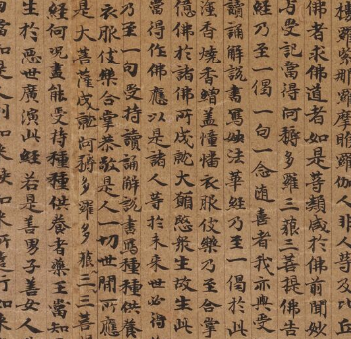 樓羅緊那羅摩睺羅伽人非人等及比丘
佛者求佛道者如是等類咸於佛前聞妙
與受記當得阿耨多羅三藐三菩提佛告
經乃至一偈一句一念隨喜者我亦與受
讀誦解說書寫妙法華經乃至一偈於此
塗香燒香繒蓋幢幡衣服伎樂乃至合掌
億佛於諸佛所成就大願愍眾生故生此
當得作佛應以是諸人等於未來世必得
乃至一句受持讀誦解說書寫種種供養
衣服伎樂合掌恭敬是人一切世間所應
是大菩薩成就阿耨多羅三藐三菩提
經何況盡能受持種種供養者藥王當知
生於惡世廣演此經若是善男子善女人
當知是人則如來使如來所遣行如來